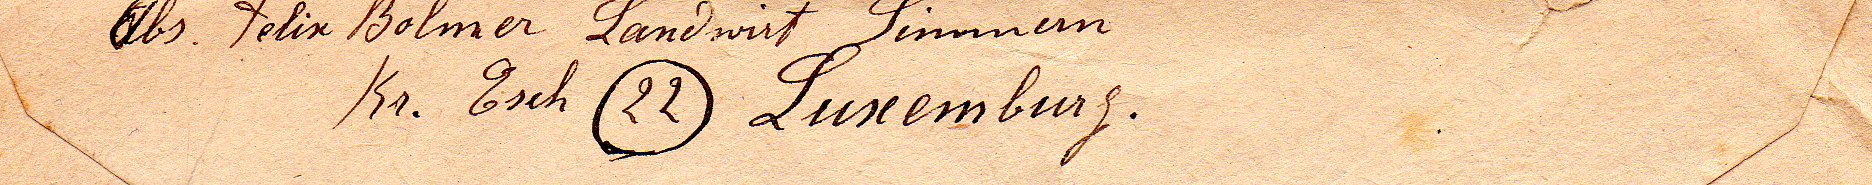 Abs. Felix Bolmer Landwirt Simmern
Kr. Esch 22 Luxemburg.